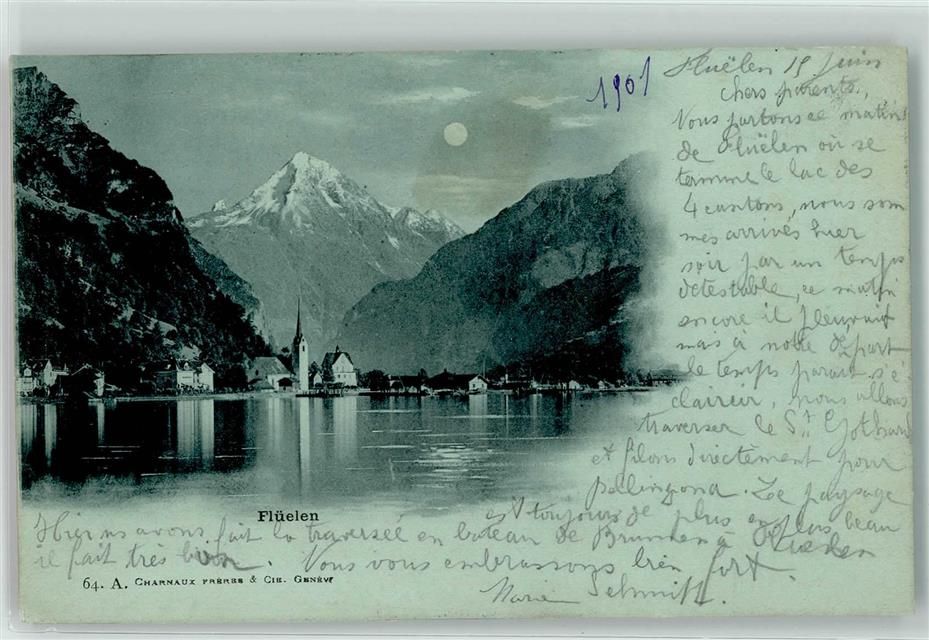 1901
Fluëlen 15 Juin
chers parents,
Nous partons ce matin
de Fluëlen où se
termine le lac des
4 cantons, nous som
mes arrivés hier
soir par un temps
détestable, ce matin
encore il pleuvait
mais à notre départ
le temps parait s'é
claircir, nous allons
traverser le St. Gothard
et filons directement pour
Bellinzona. Le paysage
est toujours de plus en plus beau
Hier ns avons fait la traversée en bateau de Brunnen à Flüelen
il fait très bon. Nous vous embrassons bien fort.
Marie Schmitt.
Flüelen
64. A. Charnaux Frères & Cie. Genève